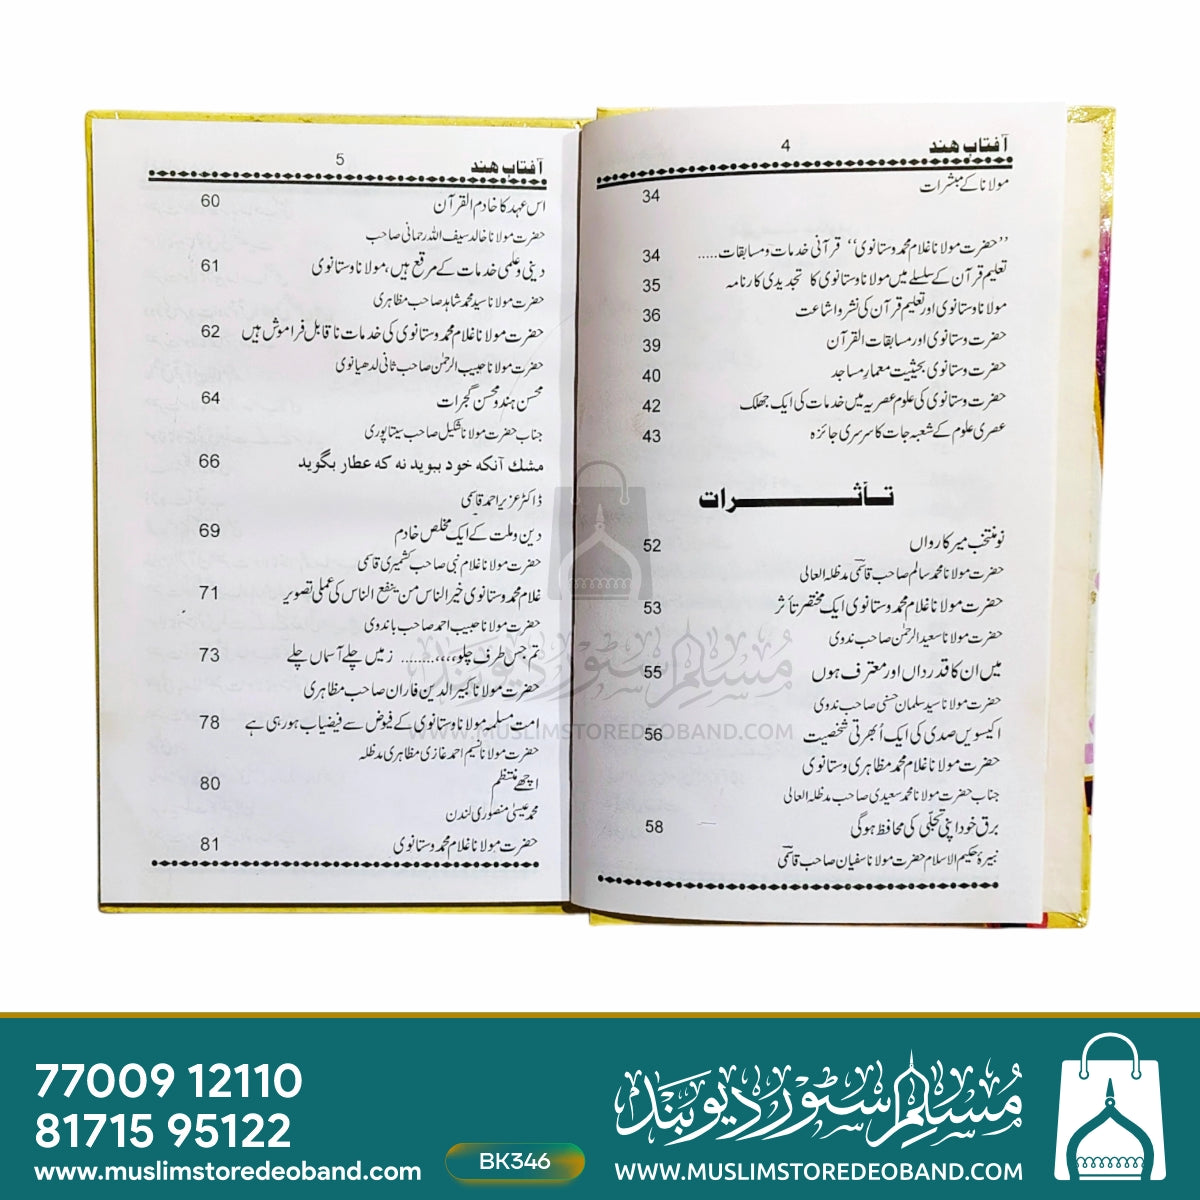 آفتاب ھند 4
مولانا کے مبشرات 34
’’حضرت مولانا غلام محمد وستانوی‘‘ قرآنی خدمات و مسابقات..... 34
تعلیم قرآن کے سلسلے میں مولانا وستانوی کا تجدیدی کارنامہ 35
مولانا وستانوی اور تعلیم قرآن کی نشر و اشاعت 36
حضرت وستانوی اور مسابقات القرآن 39
حضرت وستانوی بحیثیت معمار مساجد 40
حضرت وستانوی کی علوم عصریہ میں خدمات کی ایک جھلک 42
عصری علوم کے شعبہ جات کا سرسری جائزہ 43
تأثرات
نو منتخب میر کارواں 52
حضرت مولانا محمد سالم صاحب قاسمی مدظلہ العالی
حضرت مولانا غلام محمد وستانوی ایک مختصر تأثر 53
حضرت مولانا سعید الرحمٰن صاحب ندوی
میں ان کا قدرداں اور معترف ہوں 55
حضرت مولانا سید سلمان حسنی صاحب ندوی
اکیسویں صدی کی ایک اُبھرتی شخصیت 56
حضرت مولانا غلام محمد مظاہری وستانوی
جناب حضرت مولانا محمد سعیدی صاحب مدظلہ العالی
برق خود اپنی تجلّی کی محافظ ہوگی 58
نبیرۂ حکیم الاسلام حضرت مولانا سفیان صاحب قاسمی
آفتاب ھند 5
اس عہد کا خادم القرآن 60
حضرت مولانا خالد سیف اللہ رحمانی صاحب
دینی و علمی خدمات کے مرقع ہیں، مولانا وستانوی 61
حضرت مولانا سید محمد شاہد صاحب مظاہری
حضرت مولانا غلام محمد وستانوی کی خدمات ناقابل فراموش ہیں 62
حضرت مولانا حبیب الرحمٰن صاحب ثانی لدھیانوی
محسن ہند و محسن گجرات 64
جناب حضرت مولانا شکیل صاحب سیتاپوری
مشك آنكه خود ببويد نه كه عطار بگويد 66
ڈاکٹر عزیر احمد قاسمی
دین و ملت کے ایک مخلص خادم 69
حضرت مولانا غلام نبی صاحب کشمیری قاسمی
غلام محمد وستانوی خیر الناس من ینفع الناس کی عملی تصویر 71
حضرت مولانا حبیب احمد صاحب باندوی
تم جس طرف چلو،،،،........ زمیں چلے آسماں چلے 73
حضرت مولانا کبیر الدین فاران صاحب مظاہری
امت مسلمہ مولانا وستانوی کے فیوض سے فیضیاب ہو رہی ہے 78
حضرت مولانا نسیم احمد غازی مظاہری مدظلہ
اچھے منتظم 80
محمد عیسیٰ منصوری لندن
حضرت مولانا غلام محمد وستانوی 81
مسلم سٹور دیوبند
WWW.MUSLIMSTOREDEOBAND.COM
77009 12110
81715 95122
www.muslimstoredeoband.com
BK346
مسلم سٹور دیوبند
WWW.MUSLIMSTOREDEOBAND.COM